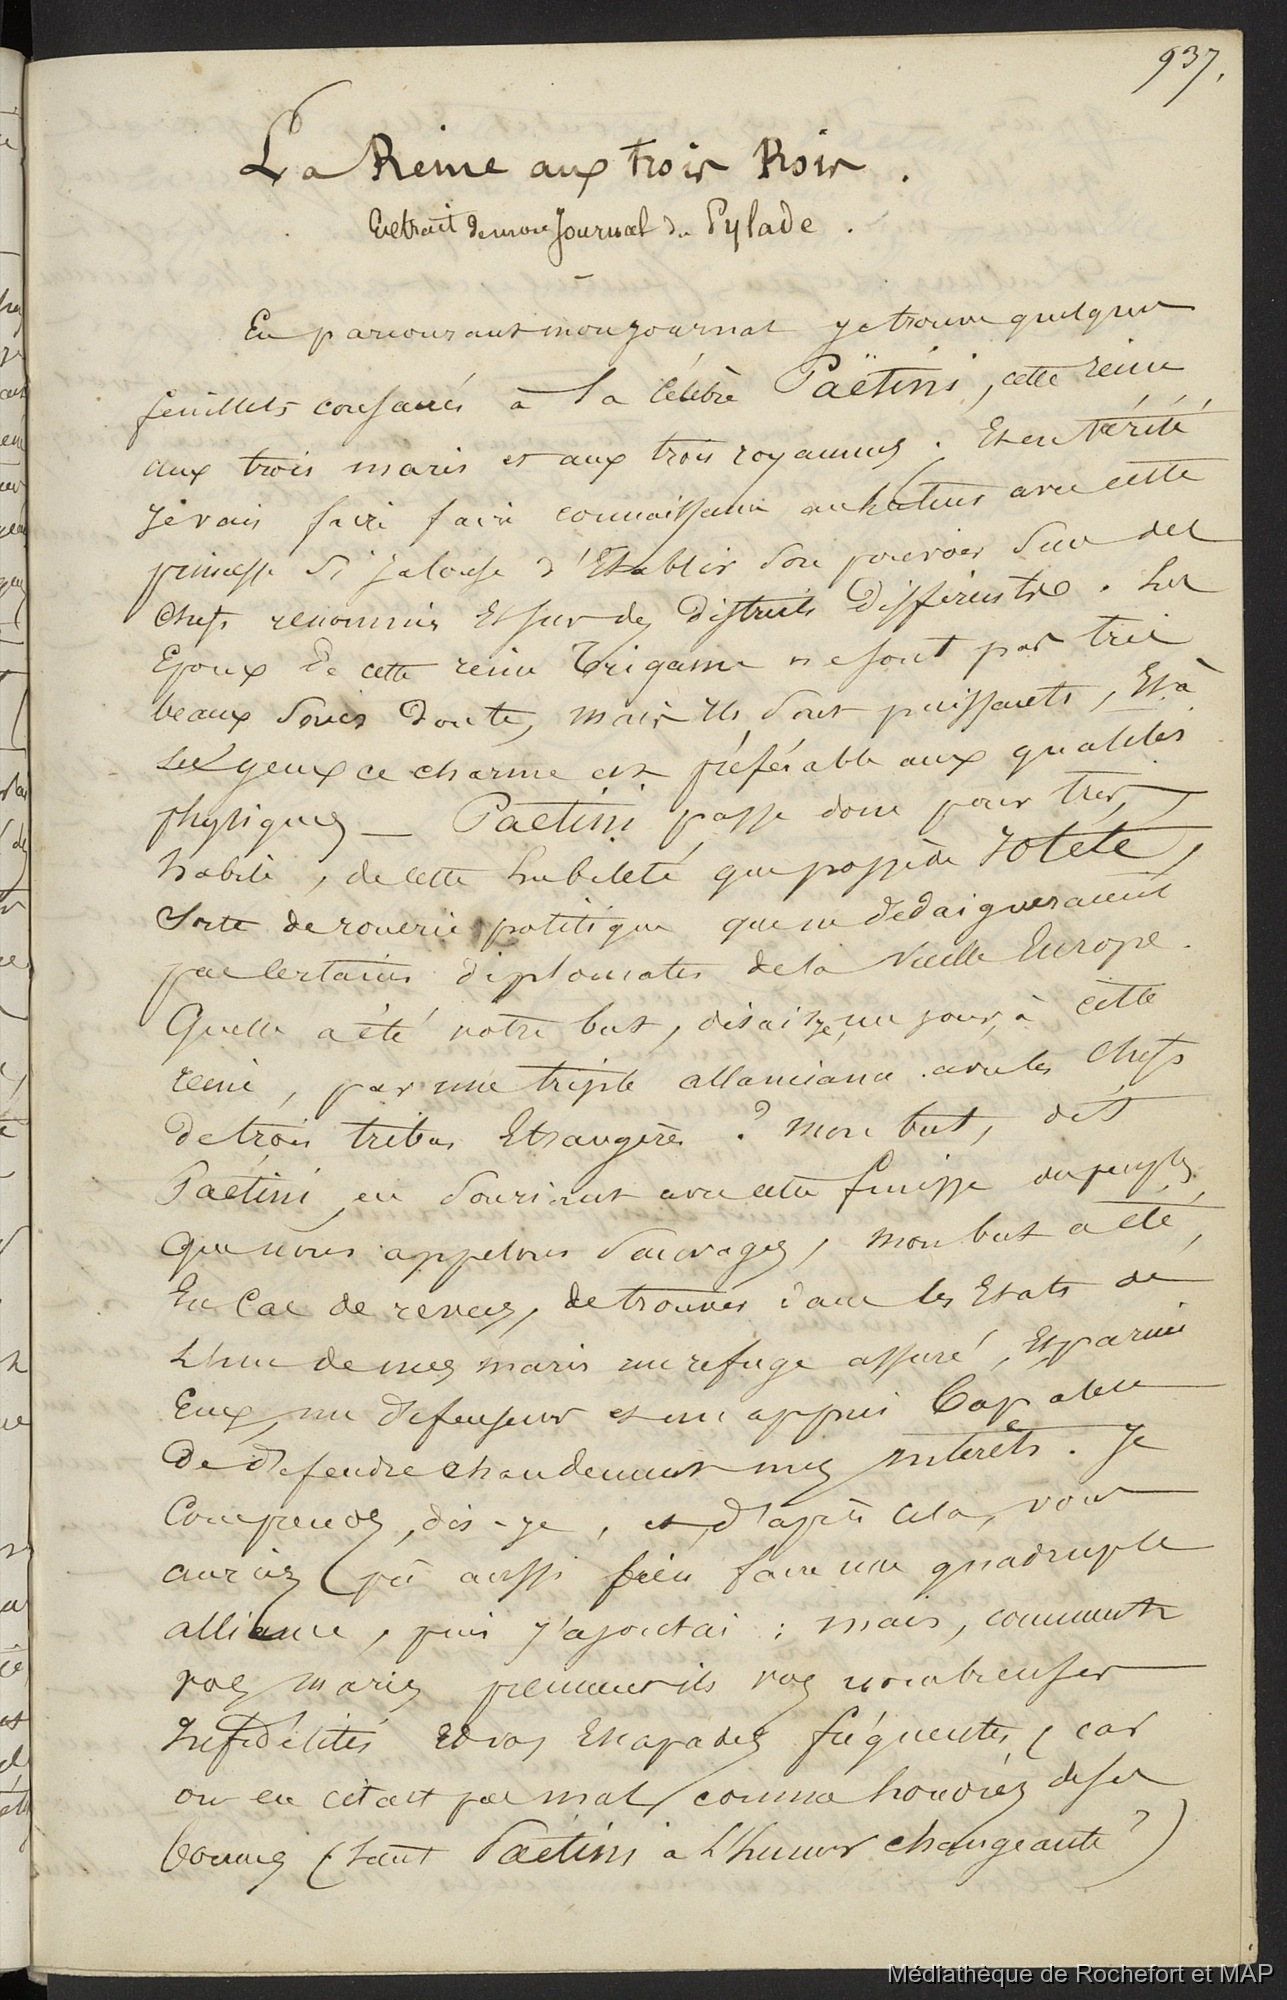 937.
La Reine aux trois Rois.
Extrait de mon Journal du Pylade.
En parcourant mon journal je trouve quelques
feuillets consacrés à la célèbre Païtini, cette reine
aux trois maris et aux trois royaumes. Et en vérité
je vais faire faire connaissance au lecteur avec cette
princesse si jalouse d'Etablir son pouvoir sur des
Chefs renommés Et sur des districts différents. Les
Epoux de cette reine Trigame ne sont pas très
beaux sans doute, mais ils sont puissants, Et à
ses yeux ce charme est préférable aux qualités
physiques — Paëtini passe donc pour très
habile, de cette habileté que possède Yotété,
sorte de rouerie politique que ne dédaigneraient
pas certains diplomates de la vieille Europe.
Quelle a été votre but, disais-je, un jour, à cette
reine, par une triple alliance avec les Chefs
de trois tribus Etrangères? mon but, dit
Paëtini, en souriant avec cette finesse du peuple
que nous appelons sauvages, mon but a été,
En Cas de revers, de trouver dans les Etats de
L'un de mes maris un refuge assuré, Et parmi
Eux, un défenseur et un appui Capable
De défendre chaudement mes intérêts. Je
Comprends, dis-je, et d'après cela, vous
auriez pû aussi bien faire une quadruple
alliance, puis j'ajoutai: mais, comment
vos maris prennent-ils vos nombreuses
Infidélités Et vos Escapades fréquentes, car
on en citait pas mal, comme honorées de ses
bonnes (tant Paëtini a l'humeur changeante?)
Médiathèque de Rochefort et MAP